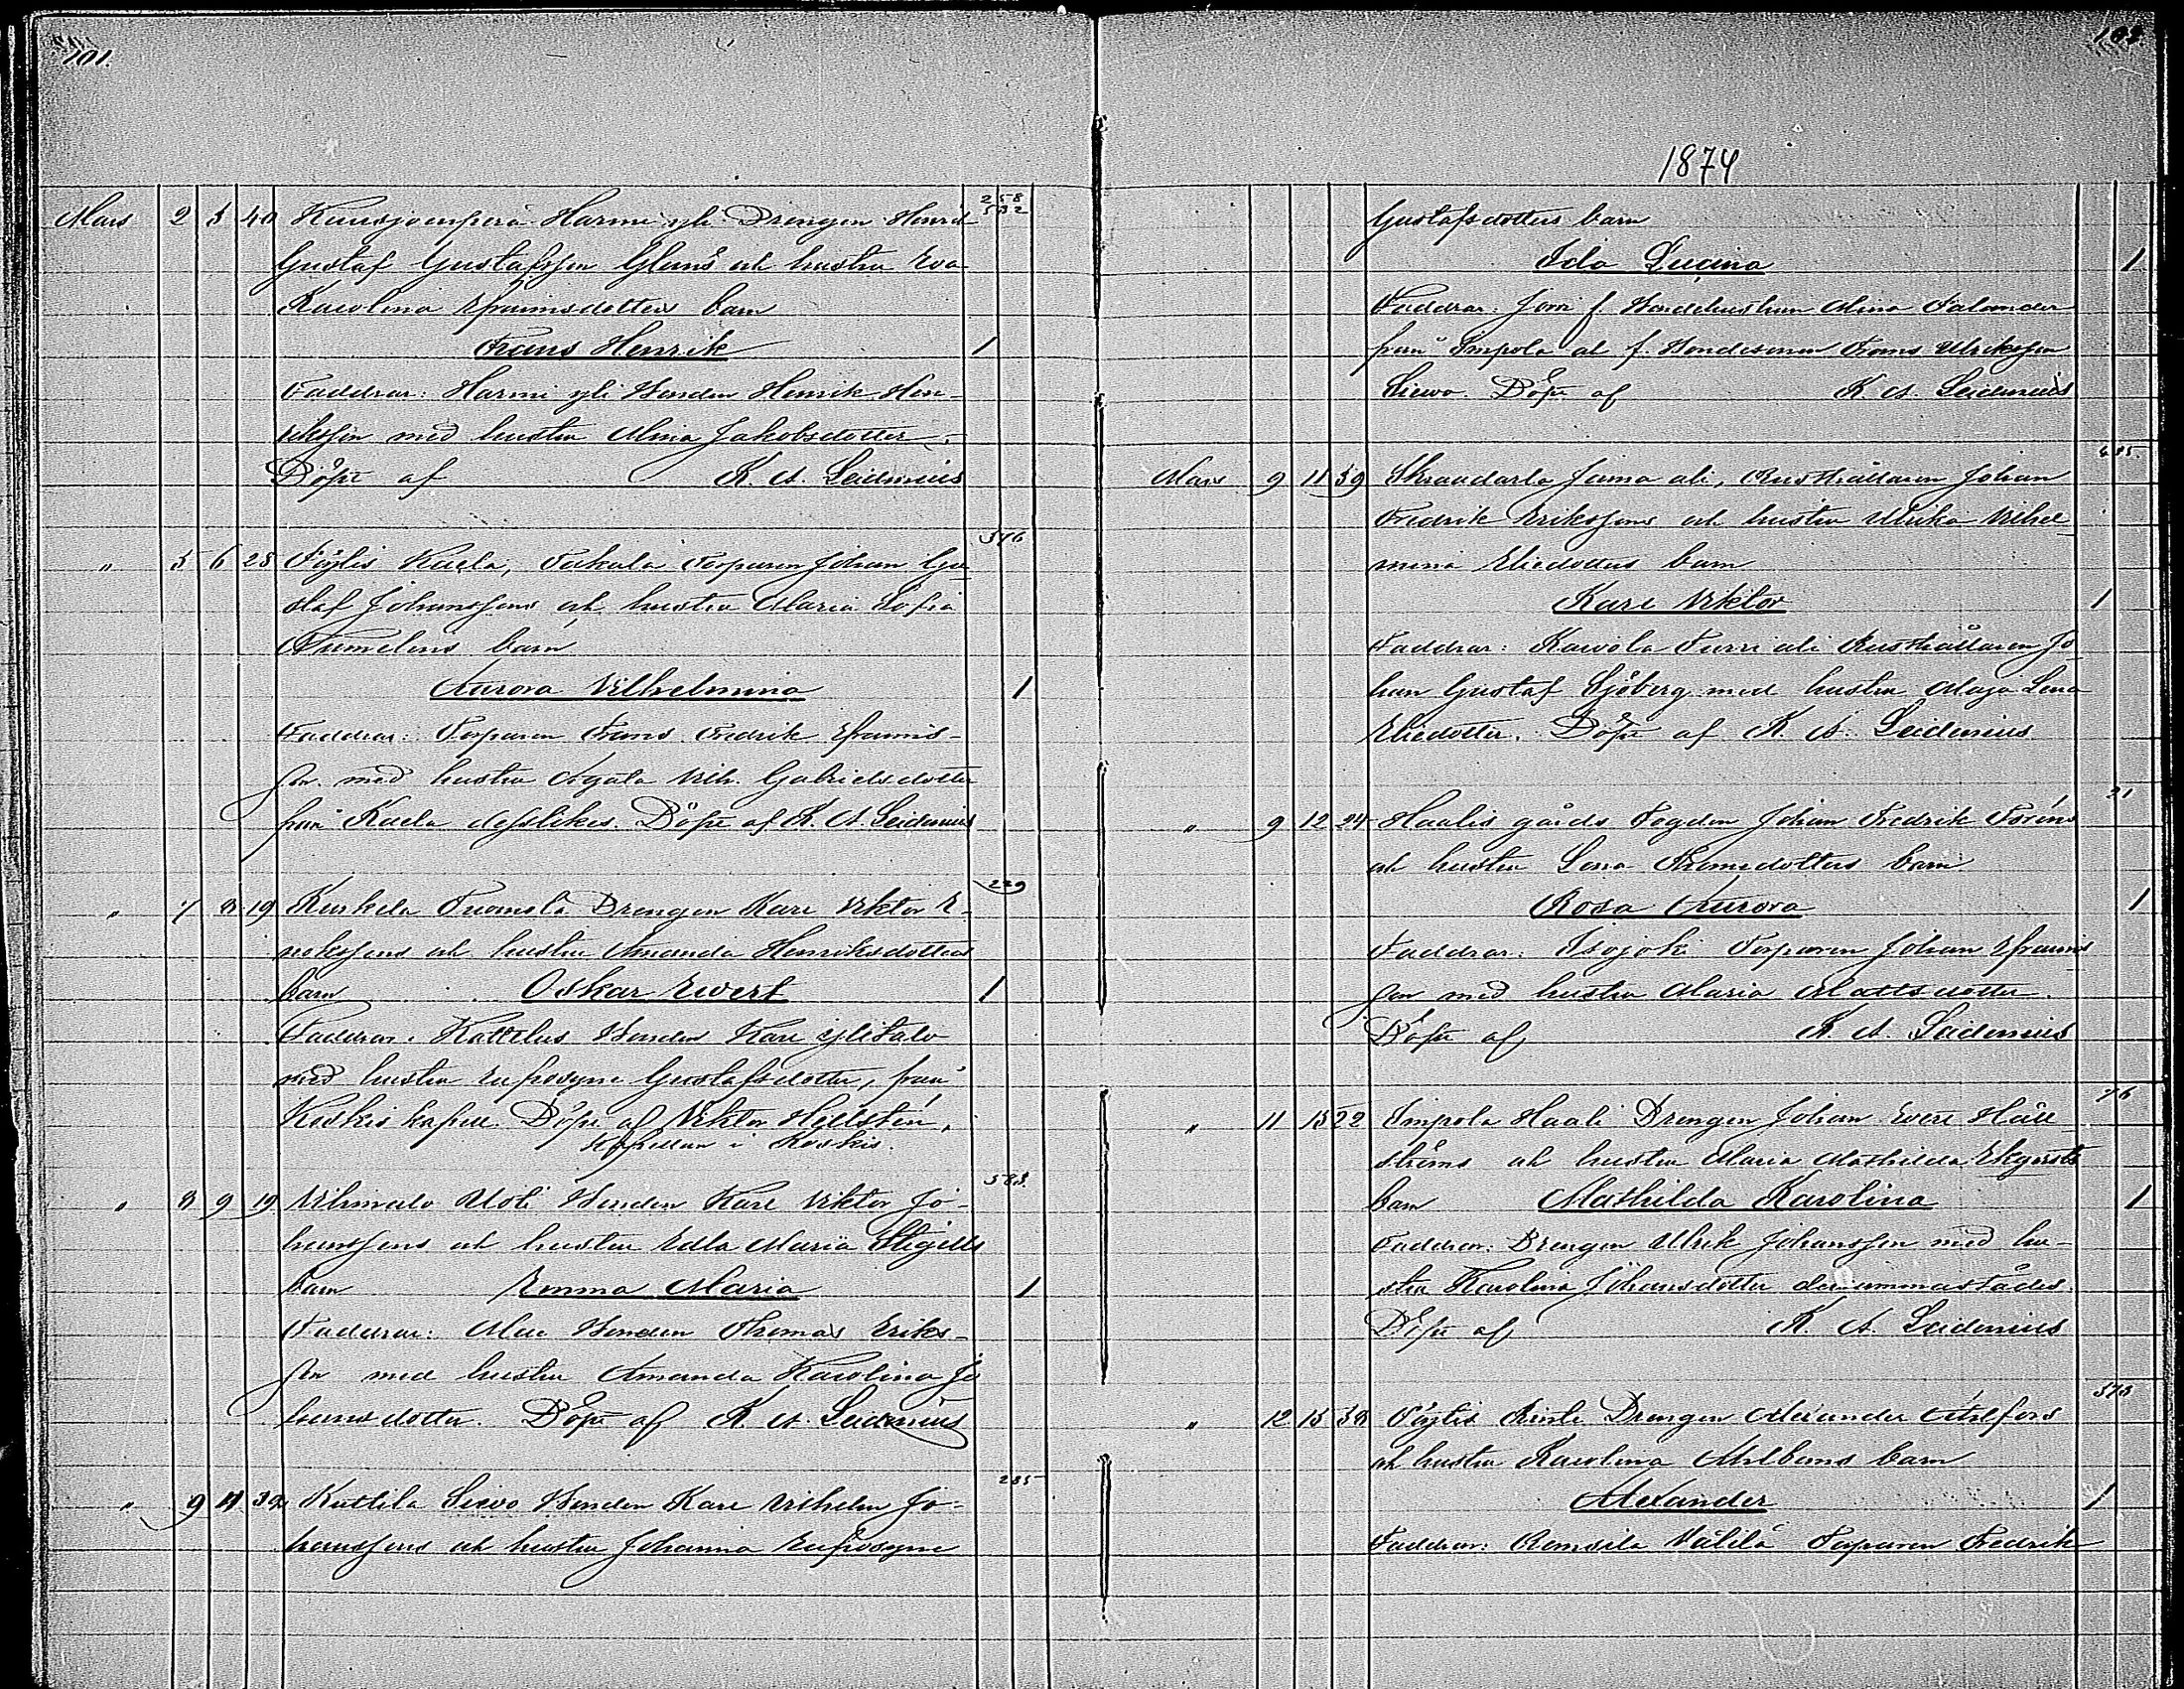 101.
Mars 2 3 40 Harmi yli Drengen Henrik 258 532
Gustaf Gustafsson och hustru Eva
Karolina Efraimsdotters barn
Frans Henrik 1
Faddrar: Harmi yli Bonden Henrik Hen-
riksson med hustru Mina Jakobsdotter.
Döpt af K. A. Leidenius
" 5 6 28 Pöytis Kaela, Torparen Johan Gu 376
staf Johanssons och hustru Maria Sofia
barn
Aurora Vilhelmina 1
Faddrar: Torparen Frans Fredrik Efraims-
son med hustru Agata Vilh. Gabrielsdotter
från Kaela desslikes. Döpt af K. A. Leidenius
" 7 8 19 Kurkela Tuomola Drengen Karl Viktor E- 229
nokssons och hustru Amanda Henriksdotters
barn Oskar Evert 1
Faddrar: Bonden Karl ylitalo
med hustru Eufrosyne Gustafsdotter, från
Koskis kapell. Döpt af Viktor Hellstén,
Kapellan i Koskis.
" 8 9 19 Uoti Bonden Karl Viktor Jo- 583
hanssons och hustru Edla Maria Stigells
barn Emma Maria 1
Faddrar: Bonden Thomas Eriks-
son med hustru Amanda Karolina Jo
hansdotter. Döpt af K. A. Leidenius
" 9 11 32 Kuttila Sievo Bonden Karl Vilhelm Jo- 285
hanssons och hustru Johanna Eufrosyne
1874
Gustafsdotters barn
Ida Lucina 1
Faddrar: f. Bondehustrun Mina Salander
från Impola och f. Bondesonen Frans Ulriksson
Sievo. Döpt af K. A. Leidenius
Mars 9 11 39 Skraadarla Jama ali, Rusthållaren Johan 485.
Fredrik Erikssons och hustru Ulrika Vilhel
mina Eliedotters barn
Karl Viktor 1
Faddrar: Turri ali Rusthållaren Jo
han Gustaf Sjöberg med hustru Maja Lena
Eliedotter. Döpt af K. A. Leidenius
" 9 12 24 Haalis gårds Fogden Johan Fredrik 21
och hustru Lena Thomedotters barn
Rosa Aurora 1
Faddrar: Isojoki Torparen Johan Efraims
son med hustru Maria Mattsdotter.
Döpt af K. A. Leidenius
" 11 15 22 Impola Haali Drengen Johan Evert Häll 76
ströms och hustru Maria Mathilda Ekqvists
barn Mathilda Karolina 1
Faddrar: Drengen Ulrik Johansson med hu-
stru Karolina Johansdotter dersammastädes.
Döpt af K. A. Leidenius
" 12 15 38 Pöytis Drengen Alexander Ahlfors 373
och hustru Karolina barn
Alexander 1
Faddrar: Välilä Torparen Fredrik